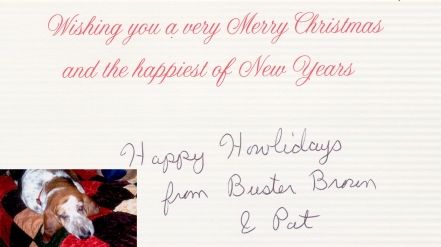 Wishing you a very Merry Christmas
and the happiest of New Years
Happy Howlidays
from Buster Brown
& Pat